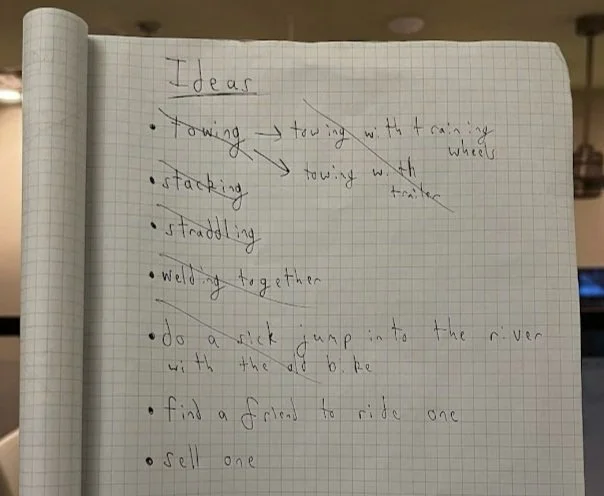 Ideas
• towing → towing with training
wheels
towing with
trailer
• stacking
• straddling
• welding together
• do a sick jump into the river
with the old bike
• find a friend to ride one
• sell one